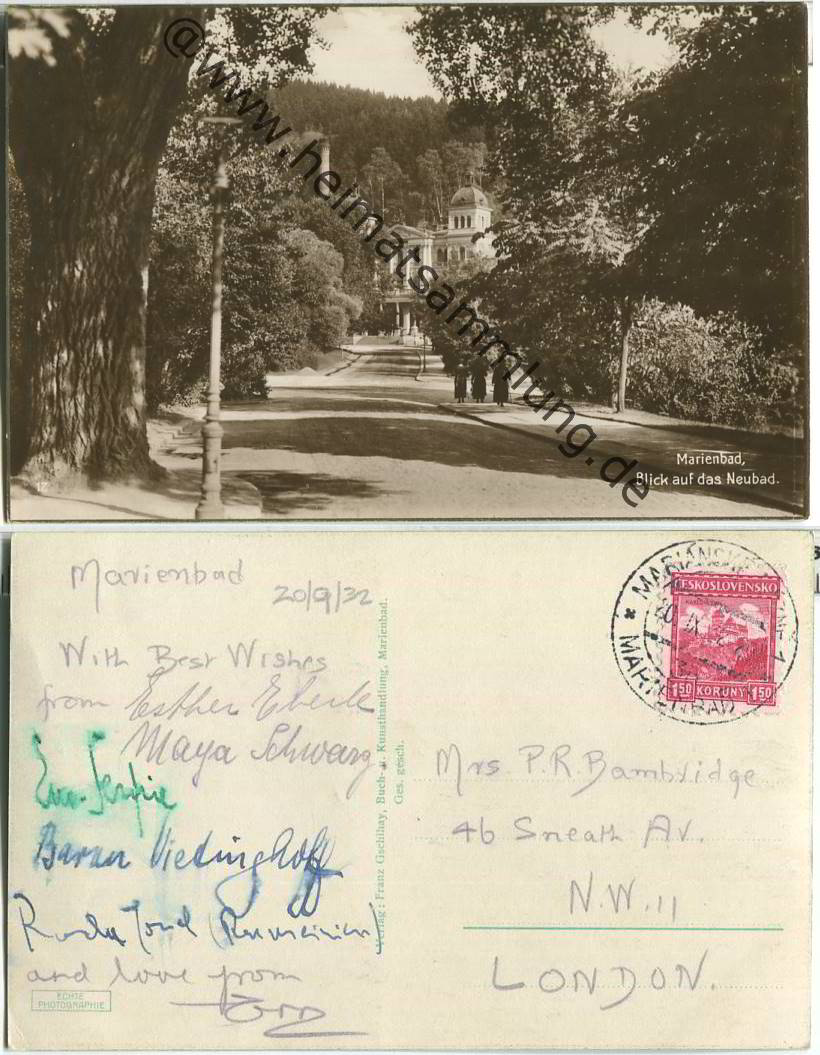 @www.heimatsammlung.de
Marienbad,
Blick auf das Neubad.
17
Marienbad
20/9/32
With Best Wishes
from Esther Eberle
Maya Schwarz
Baron Vietinghoff
and love from
ECHTE
PHOTOGRAPHIE
Verlag: Franz Gschihay, Buch- u. Kunsthandlung, Marienbad.
Ges. gesch.
ČESKOSLOVENSKO
1·50 KORUNY 1·50
MARIENBAD
1
Mrs. P. R. Bambridge
46 Sneath Av.
N.W. 11
LONDON.